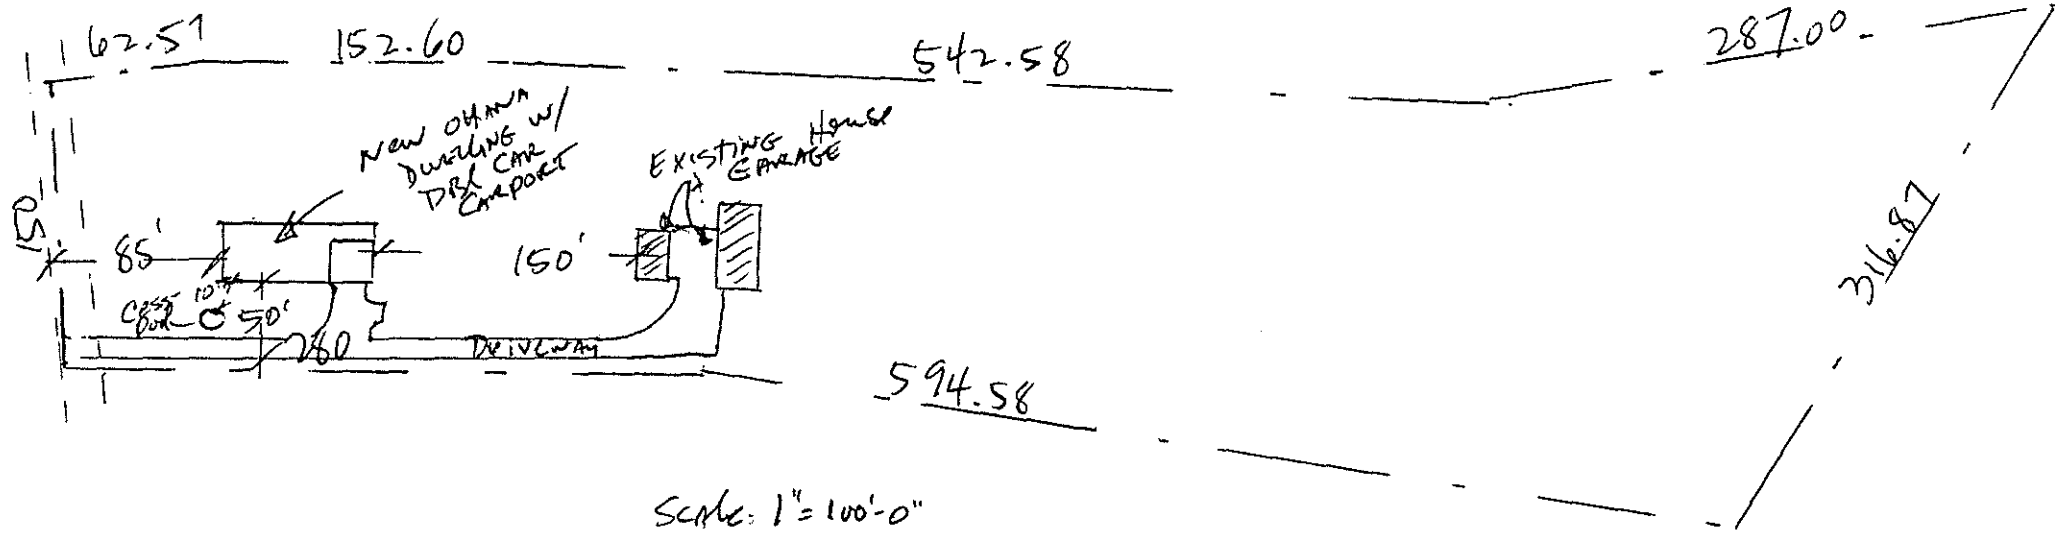 62.57
152.60
542.58
287.00
NEW OHANA
DWELLING W/
DBL CAR
CARPORT
EXISTING House
GARAGE
150
85'
150'
316.87
CESS
POOL
10'
50'
280
DRIVEWAY
594.58
Scale: 1"=100'-0"